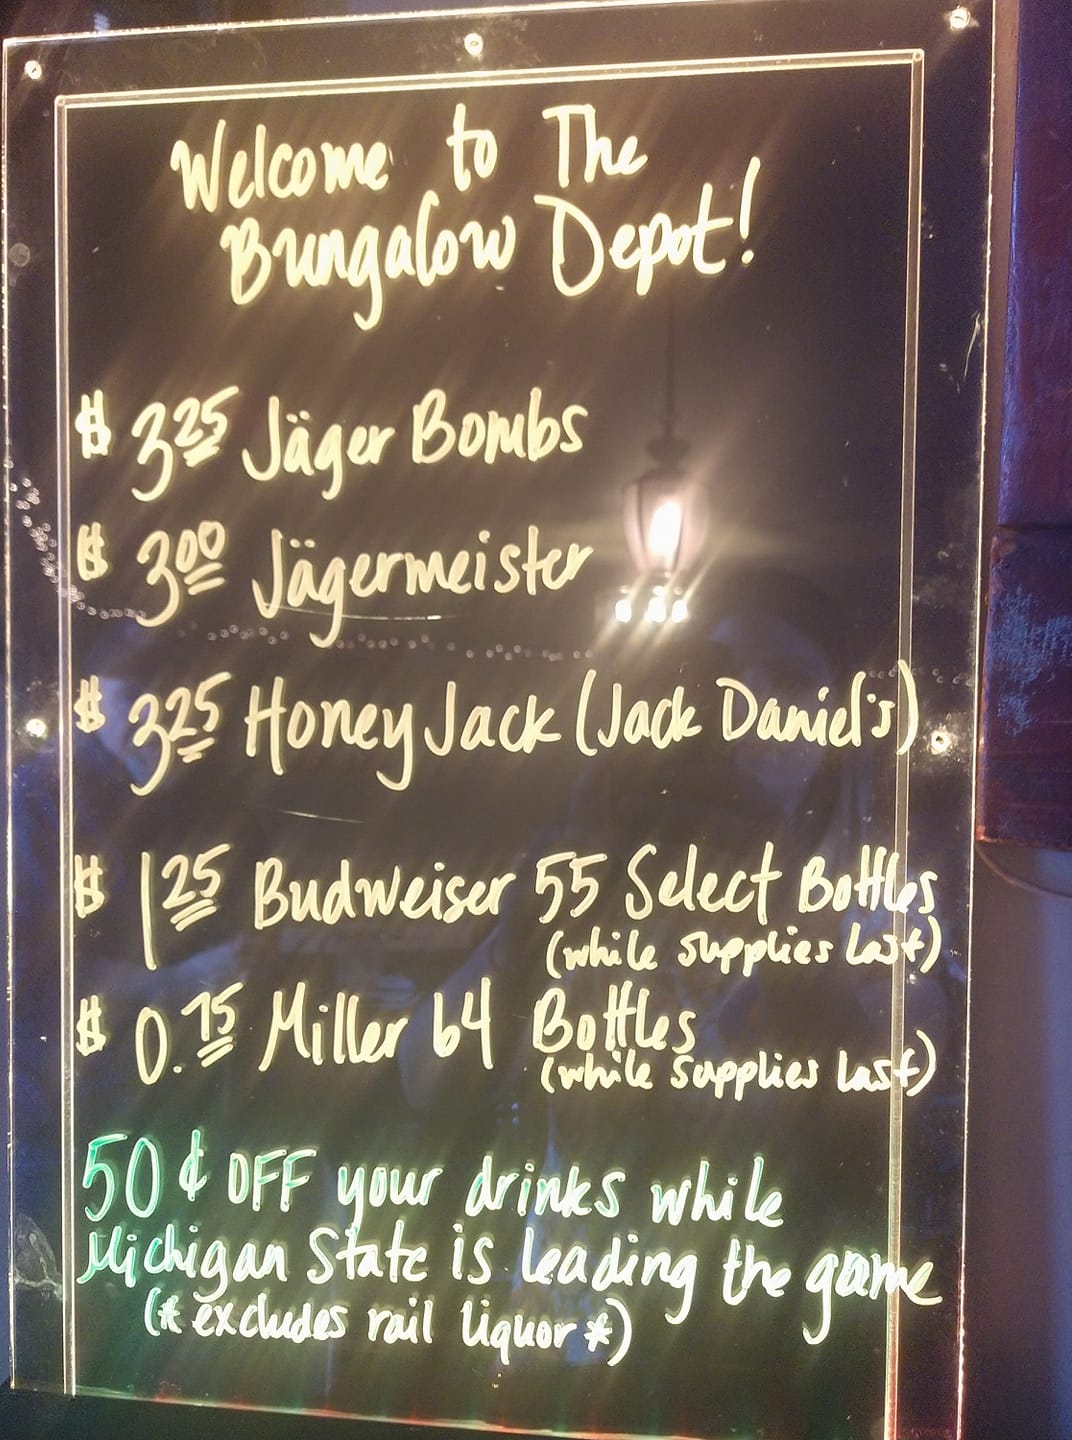 Welcome to The
Bungalow Depot!
$ 3.25 Jäger Bombs
$ 3.00 Jägermeister
$ 3.25 Honey Jack (Jack Daniel's)
$ 1.25 Budweiser 55 Select Bottles
(while supplies last)
$ 0.75 Miller 64 Bottles
(while supplies last)
50¢ OFF your drinks while
Michigan State is leading the game
(* excludes rail liquor *)